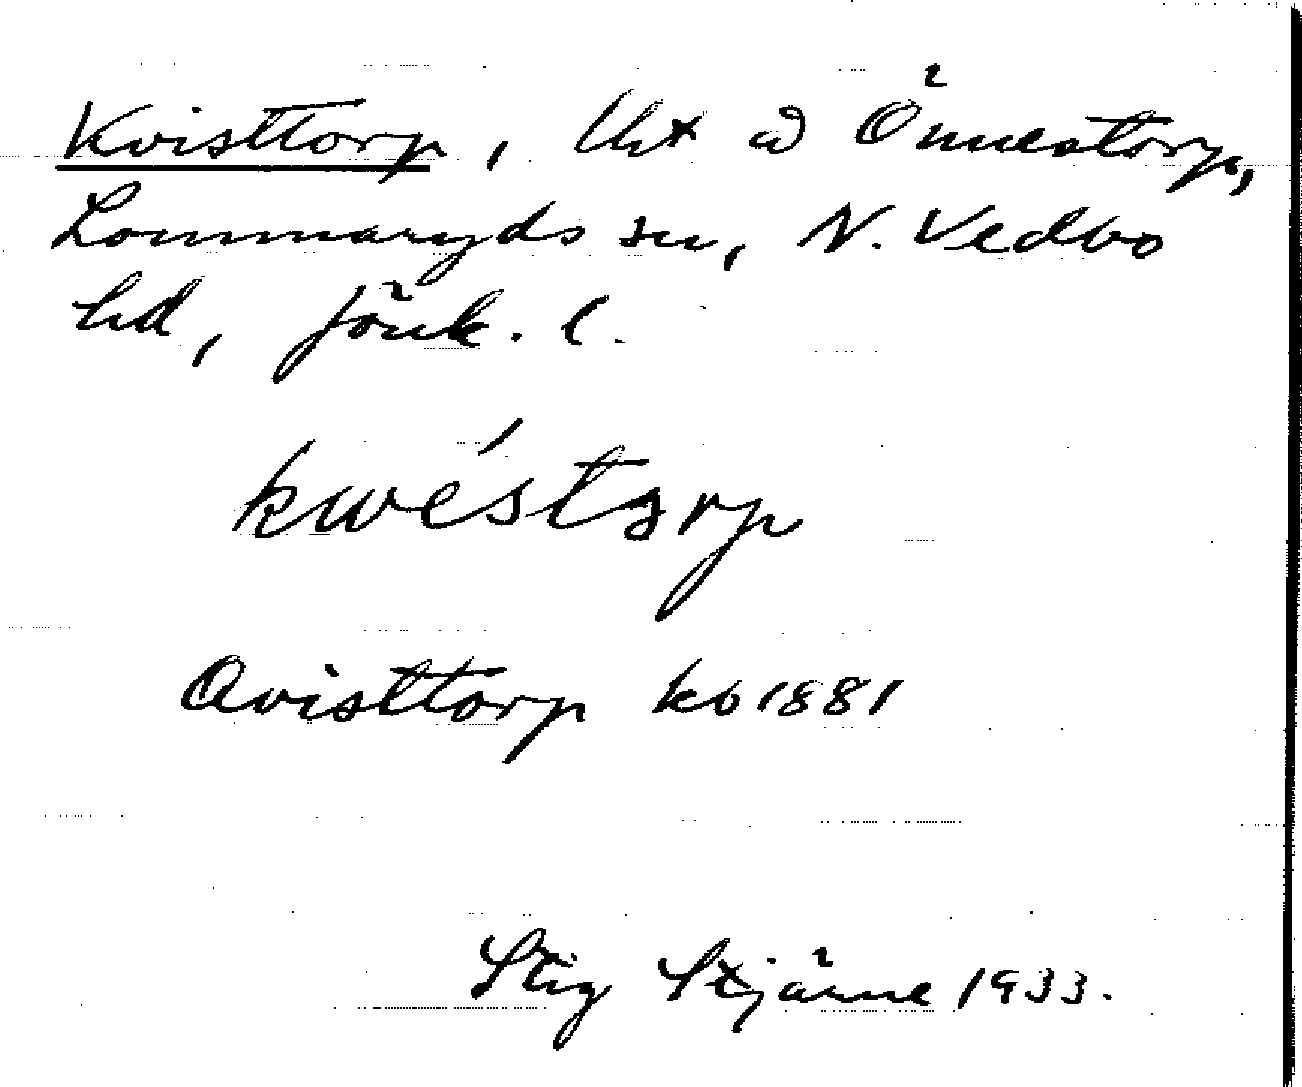 Kvisttorp, lht å Önnestorp,
Lommaryds sn, N. Vedbo
hd, Jönk. l.
kwéstərp
Qvisttorp kb 1881
Stig Stjärne 1933.